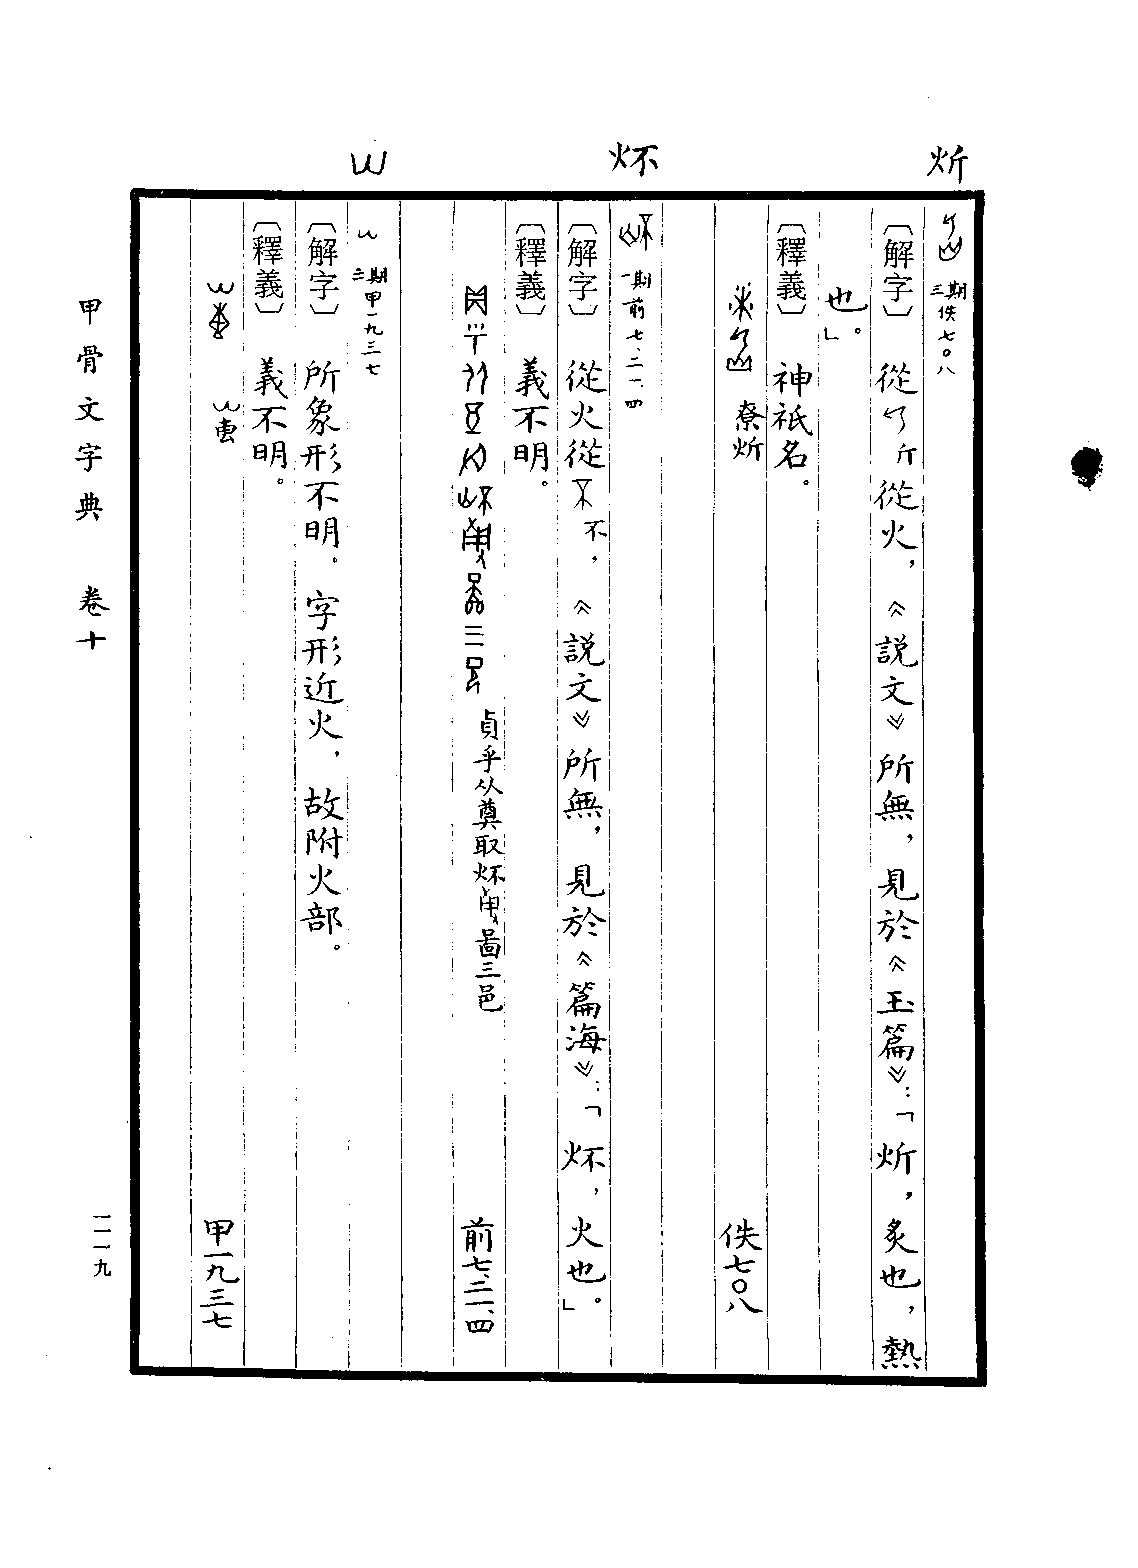 炘
三期
佚七〇八
〔解字〕 從斤從火，《說文》所無，見於《玉篇》：「炘，炙也，熱
也。」
〔釋義〕 神祇名。
尞炘 佚七〇八
炋
一期
前七、二一、四
〔解字〕 從火從不，《說文》所無，見於《篇海》：「炋，火也。」
〔釋義〕 義不明。
貞乎从奠取炋啚三邑 前七、二一、四
三期
甲一九三七
〔解字〕 所象形不明。字形近火，故附火部。
〔釋義〕 義不明。
甲一九三七
甲骨文字典 卷十
一一一九